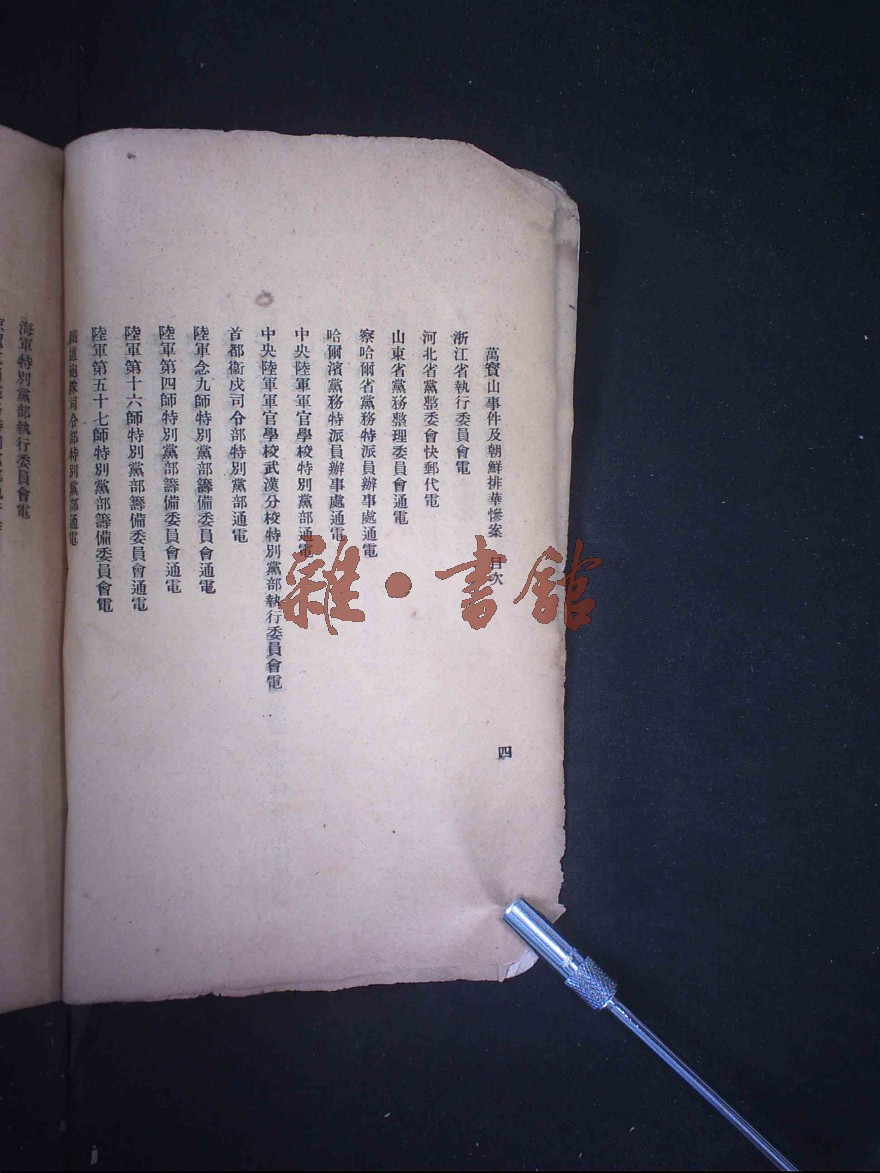 萬寶山事件及朝鮮排華慘案 目次
四
浙江省執行委員會電
河北省黨整委會快郵代電
山東省黨務整理委員會通電
察哈爾省黨務特派員辦事處通電
哈爾濱黨務特派員辦事處通電
中央陸軍軍官學校特別黨部通電
中央陸軍軍官學校武漢分校特別黨部執行委員會電
首都衞戍司令部特別黨部通電
陸軍念九師特別黨部籌備委員會通電
陸軍第四師特別黨部籌備委員會通電
陸軍第十六師特別黨部籌備委員會通電
陸軍第五十七師特別黨部籌備委員會電
鐵道砲隊司令部特別黨部通電
海軍特別黨部執行委員會電
雜·書館